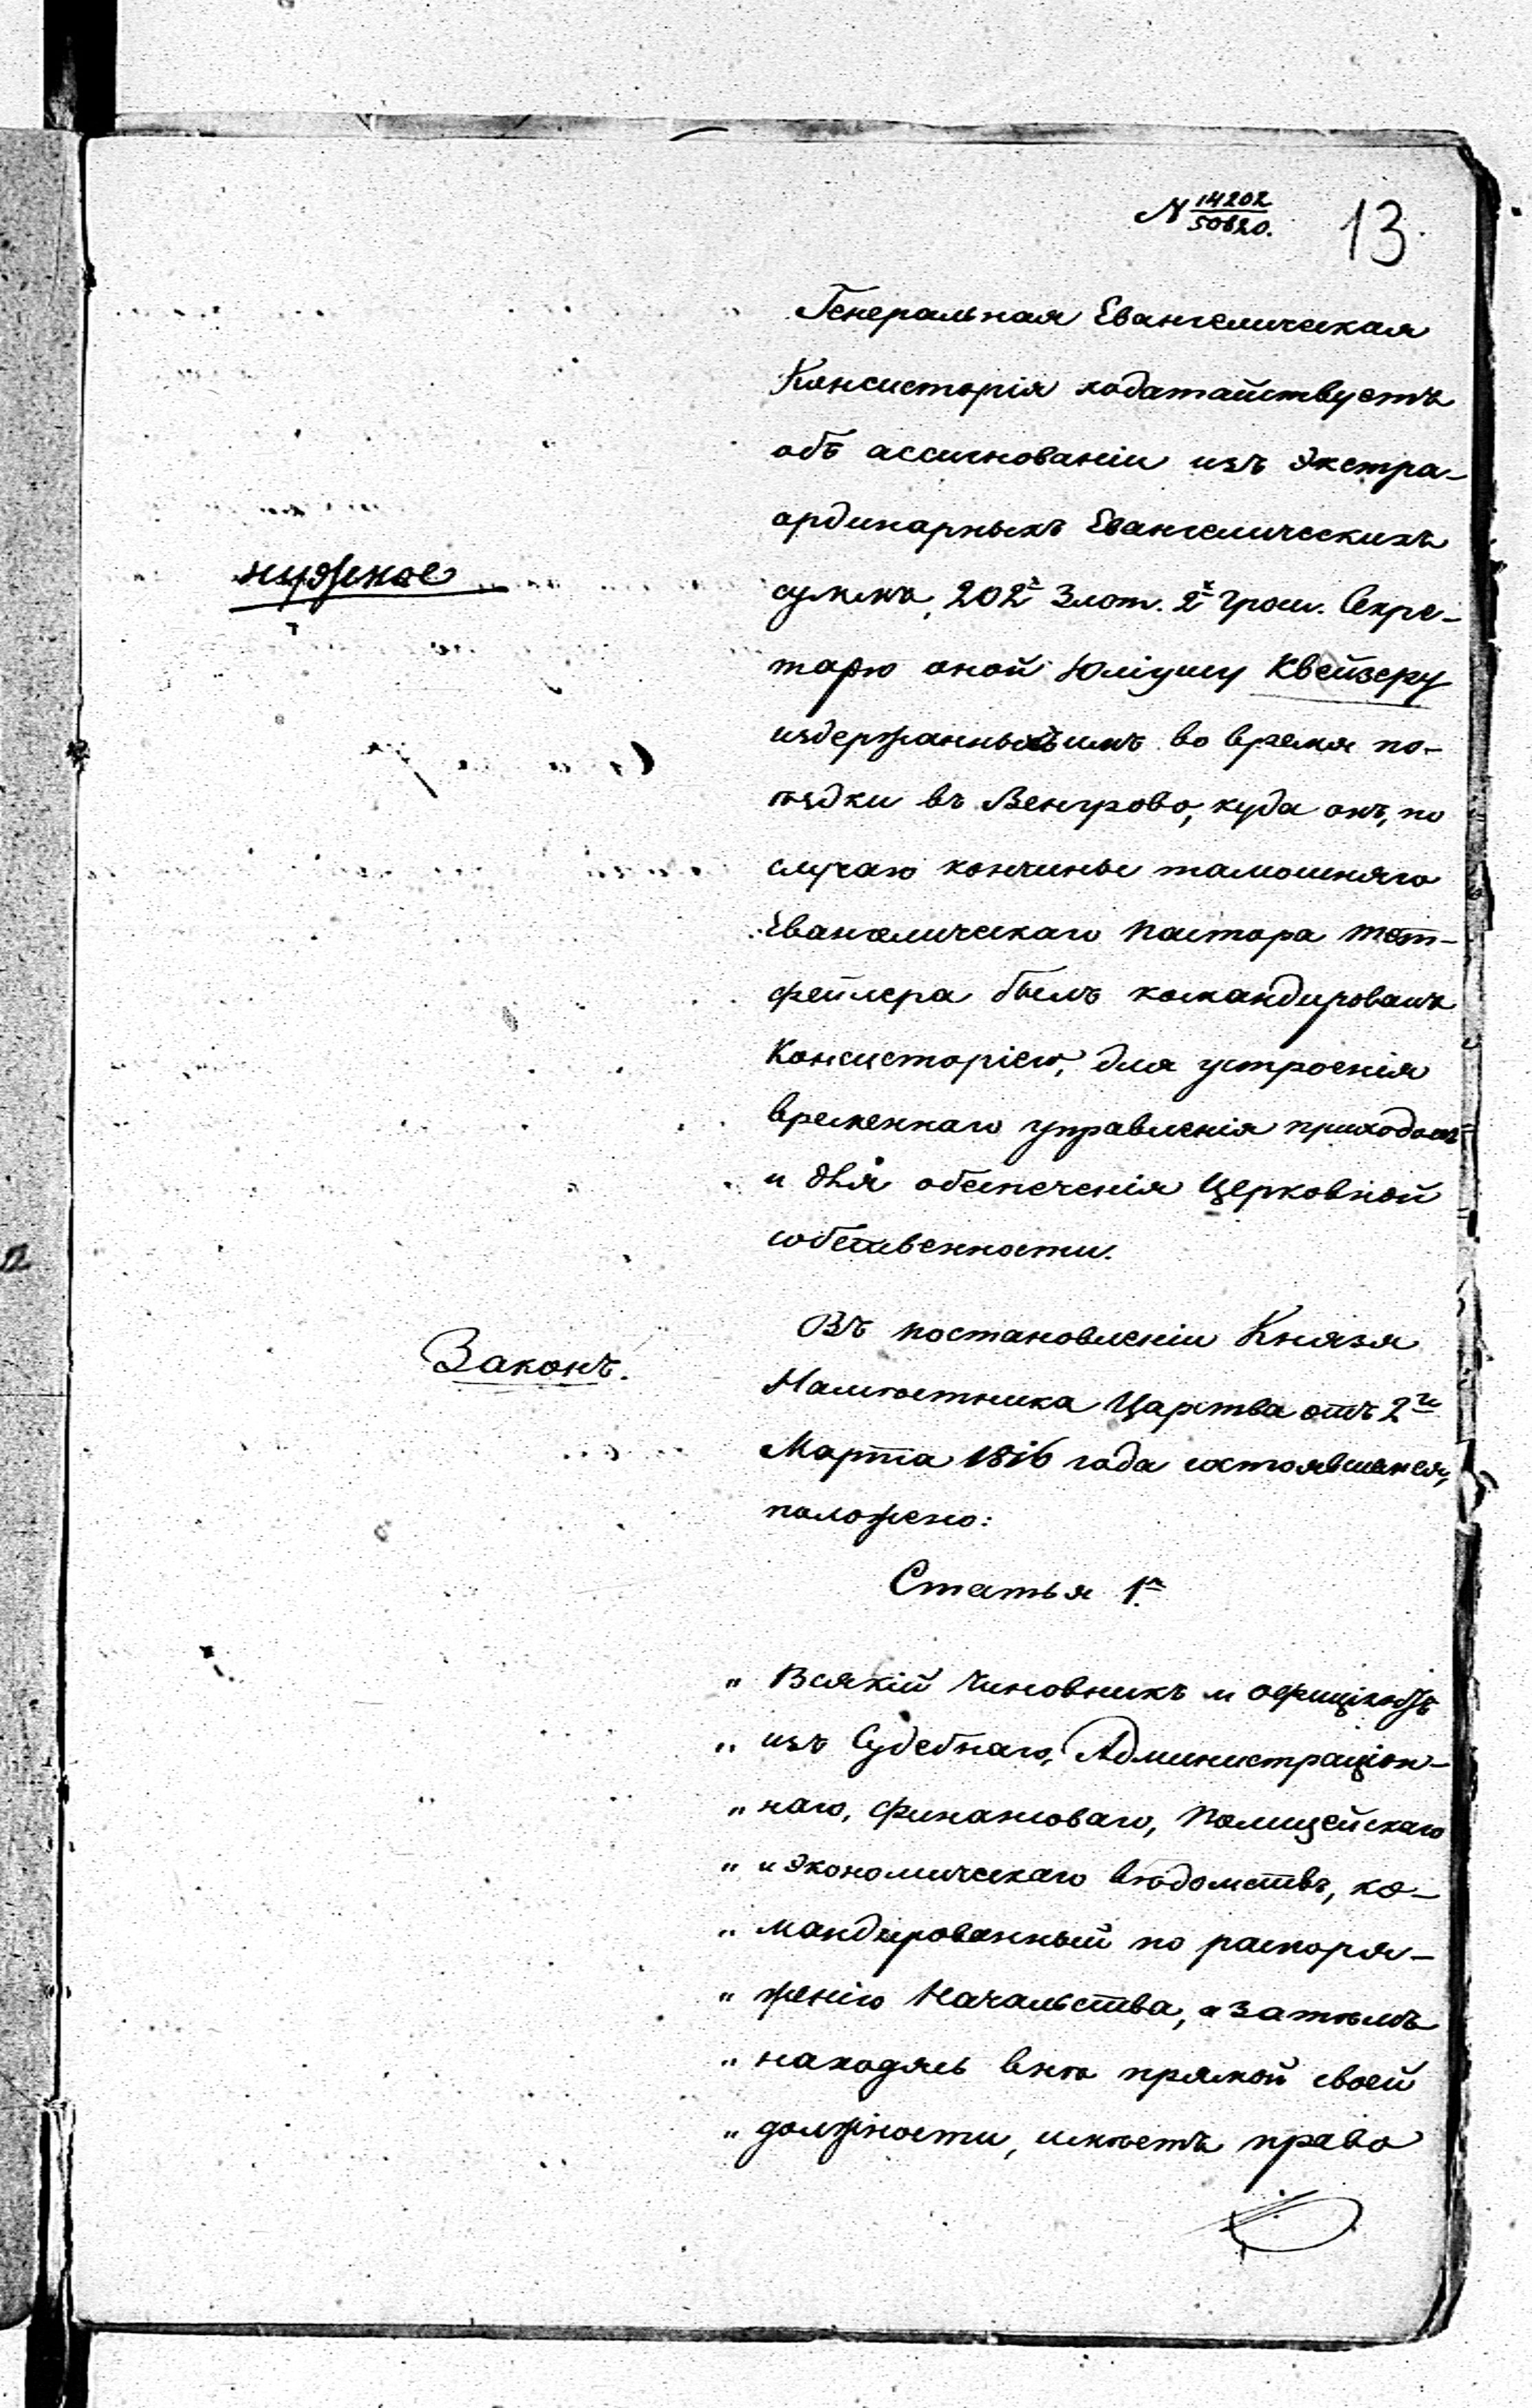 N 14202/50620.
13
Генеральная Евангелическая
Консисторія ходатайствуетъ
объ ассигнованіи изъ Экстра-
ординарныхъ Евангелическихъ
суммъ, 202х Злот. 2х Грош. Секре-
нужное
тарю оной Юліушу Квейзеру
издержанныхъ имъ во время по-
ѣздки въ Венгрово, куда онъ, по
случаю кончины тамошняго
Евангелическаго Пастора Тет-
фейлера былъ командированъ
Консисторіею, для устроенія
временнаго управленія приходомъ
и для обезпеченія Церковной
собственности.
Законъ.
Въ постановленіи Князя
Намѣстника Царства отъ 2го
Марта 1816 года состоявшемся,
положено:
Статья 1я
„ Всякій Чиновникъ и оффиціантъ
„ изъ Судебнаго, Администраціон-
„ наго, Финансоваго, Полицейскаго
„ и Экономическаго вѣдомствъ, ко-
„ мандированный по распоря-
„ женію Начальства, а затѣмъ
„ находясь внѣ прямой своей
„ должности, имѣетъ право